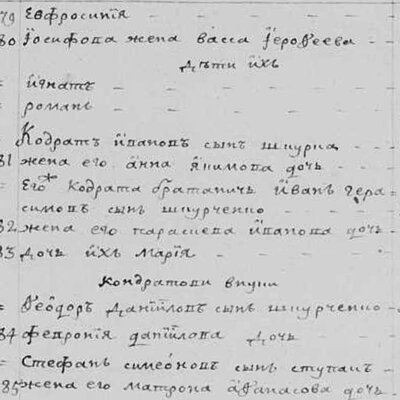 79 Евфросинїя
80 Іосифова жена васса їероѳеева
дѣти ихъ
= йгнатъ
= романъ
Кодратъ йвановъ сынъ шкурка
81 жена его анна якимова дочь
= Его Кодрата братаничь йванъ гера
симовъ сынъ шкурченко
82 жена его параскева йванова дочь
83 дочь йхъ марїя
кондратови внуки
= Ѳеѡдоръ данїиловъ сынъ шкурченко
84 февронїя данїилова дочь
= Стефанъ симеоновъ сынъ ступак
85 жена его матрона аѳанасова дочь